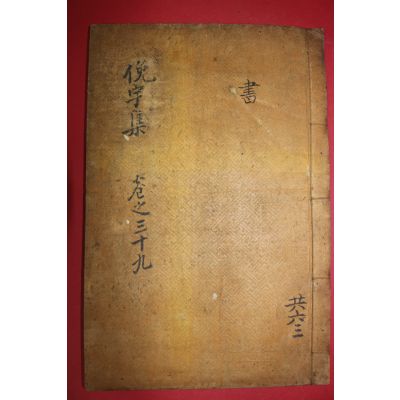 俛宇集
卷之三十九
書
共六三